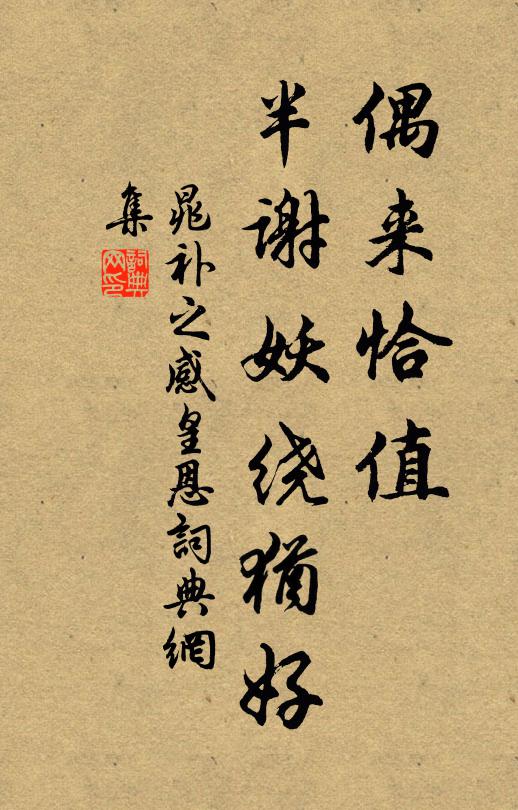 偶来恰值
半谢妖绕犹好
晁补之感皇恩詞典網
集
詞典
网印